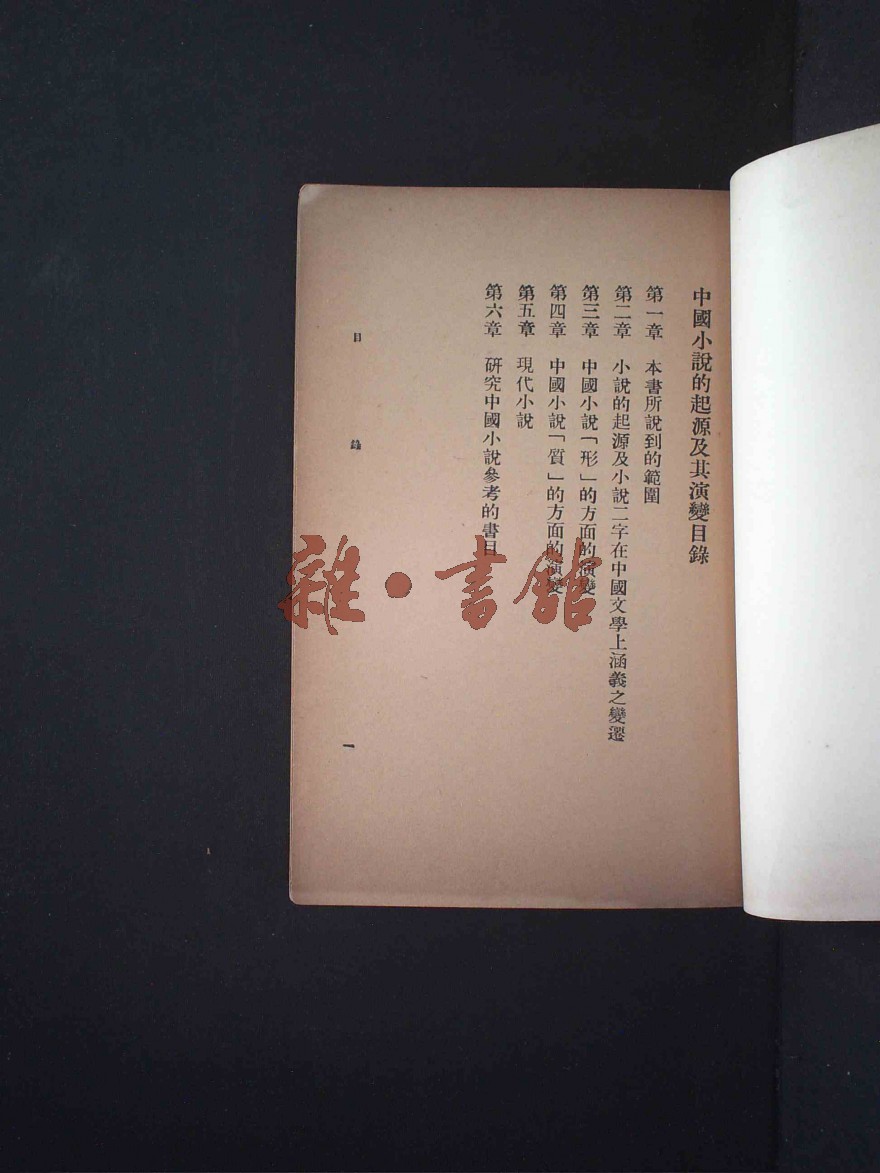 中國小說的起源及其演變目錄
第一章　本書所說到的範圍
第二章　小說的起源及小說二字在中國文學上涵義之變遷
第三章　中國小說「形」的方面的演變
第四章　中國小說「質」的方面的演變
第五章　現代小說
第六章　硏究中國小說參考的書目
目　錄　一
雜·書館